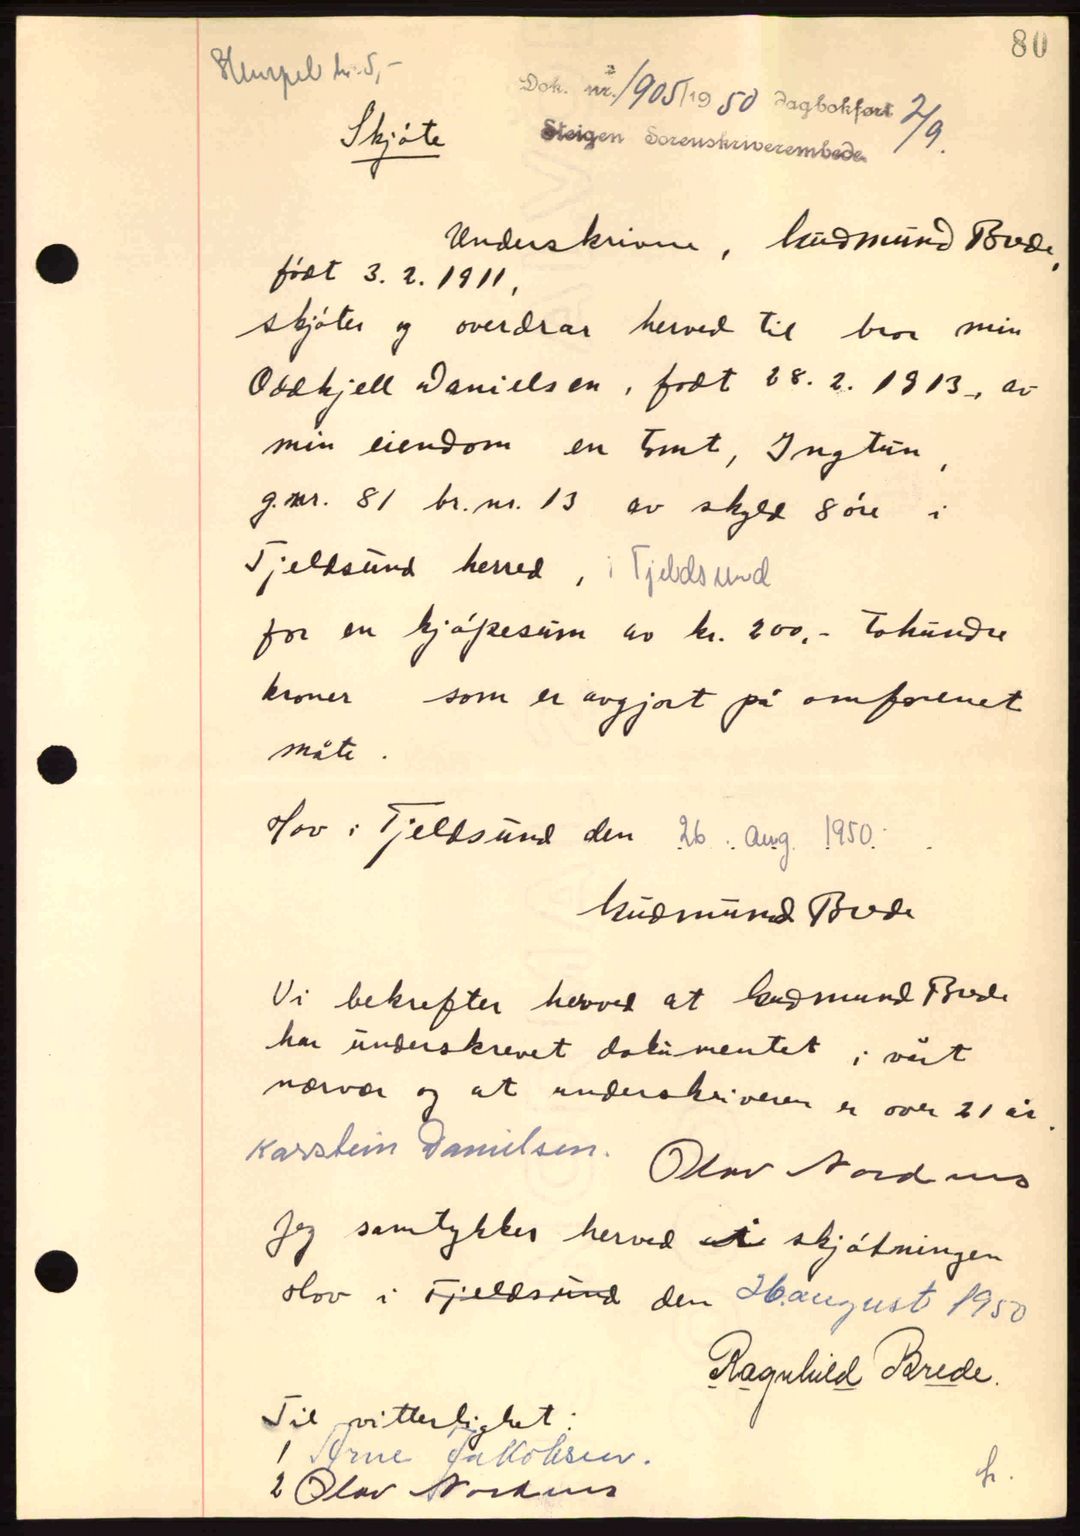 80
Stempel kr. 5,-
Dok. nr. 1905/1950 dagbokført 2/9.
Steigen Sorenskriverembede
Skjøte
Underskrivne, Gudmund Brede,
født 3.2.1911,
skjøter og overdrar herved til bror min
Oddkjell Danielsen, født 28.2.1913, av
min eiendom en tomt, Ingtun,
g.nr. 81 br.nr. 13 av skyld 8 øre i
Tjeldsund herred, i Tjeldsund
for en kjøpesum av kr. 200,- tohundre
kroner som er avgjort på omforenet
måte.
Hov i Tjeldsund den 26. aug. 1950.
Gudmund Brede
Vi bekrefter herved at Gudmund Brede
har underskrevet dokumentet i vårt
nærvær og at underskriveren er over 21 år.
Karstein Danielsen. Olav Nordnes
Jeg samtykker herved i skjøtningen
Hov i Tjeldsund den 26. august 1950
Ragnhild Brede.
Til vitterlighet:
1 Arne Jakobsen.
2 Olav Nordnes